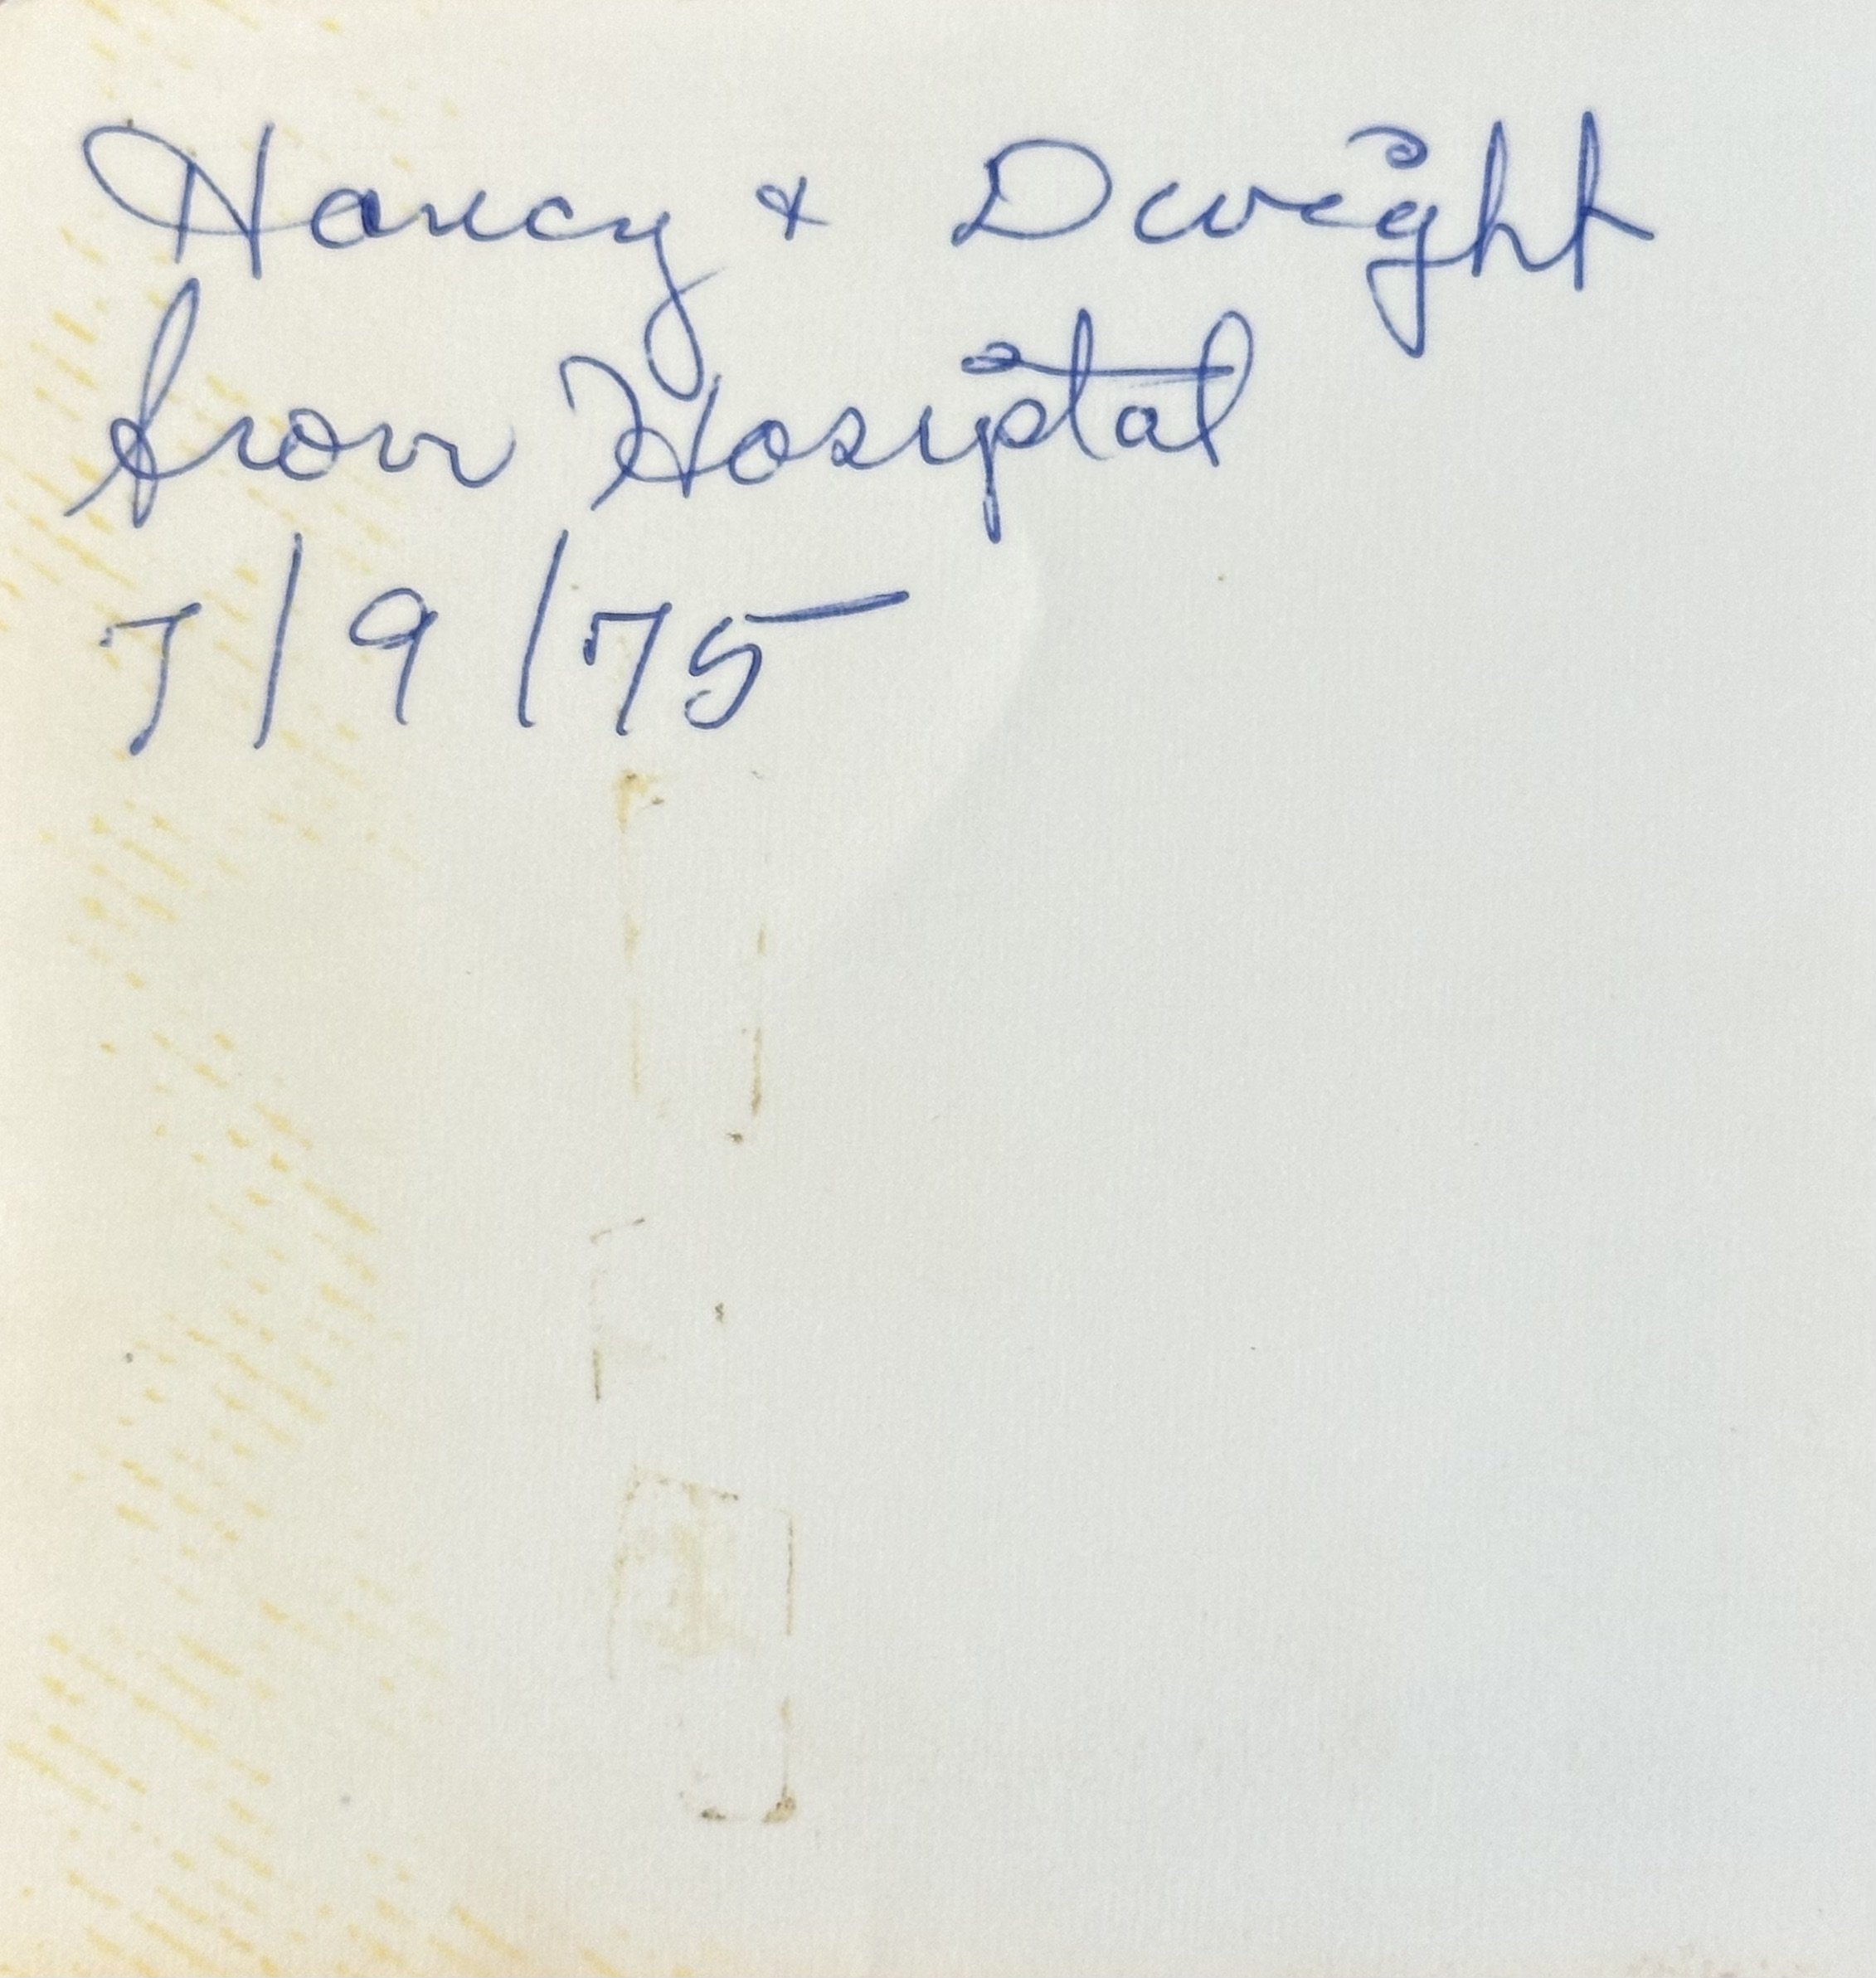 Nancy & Dwight
from Hosiptal
7/9/75